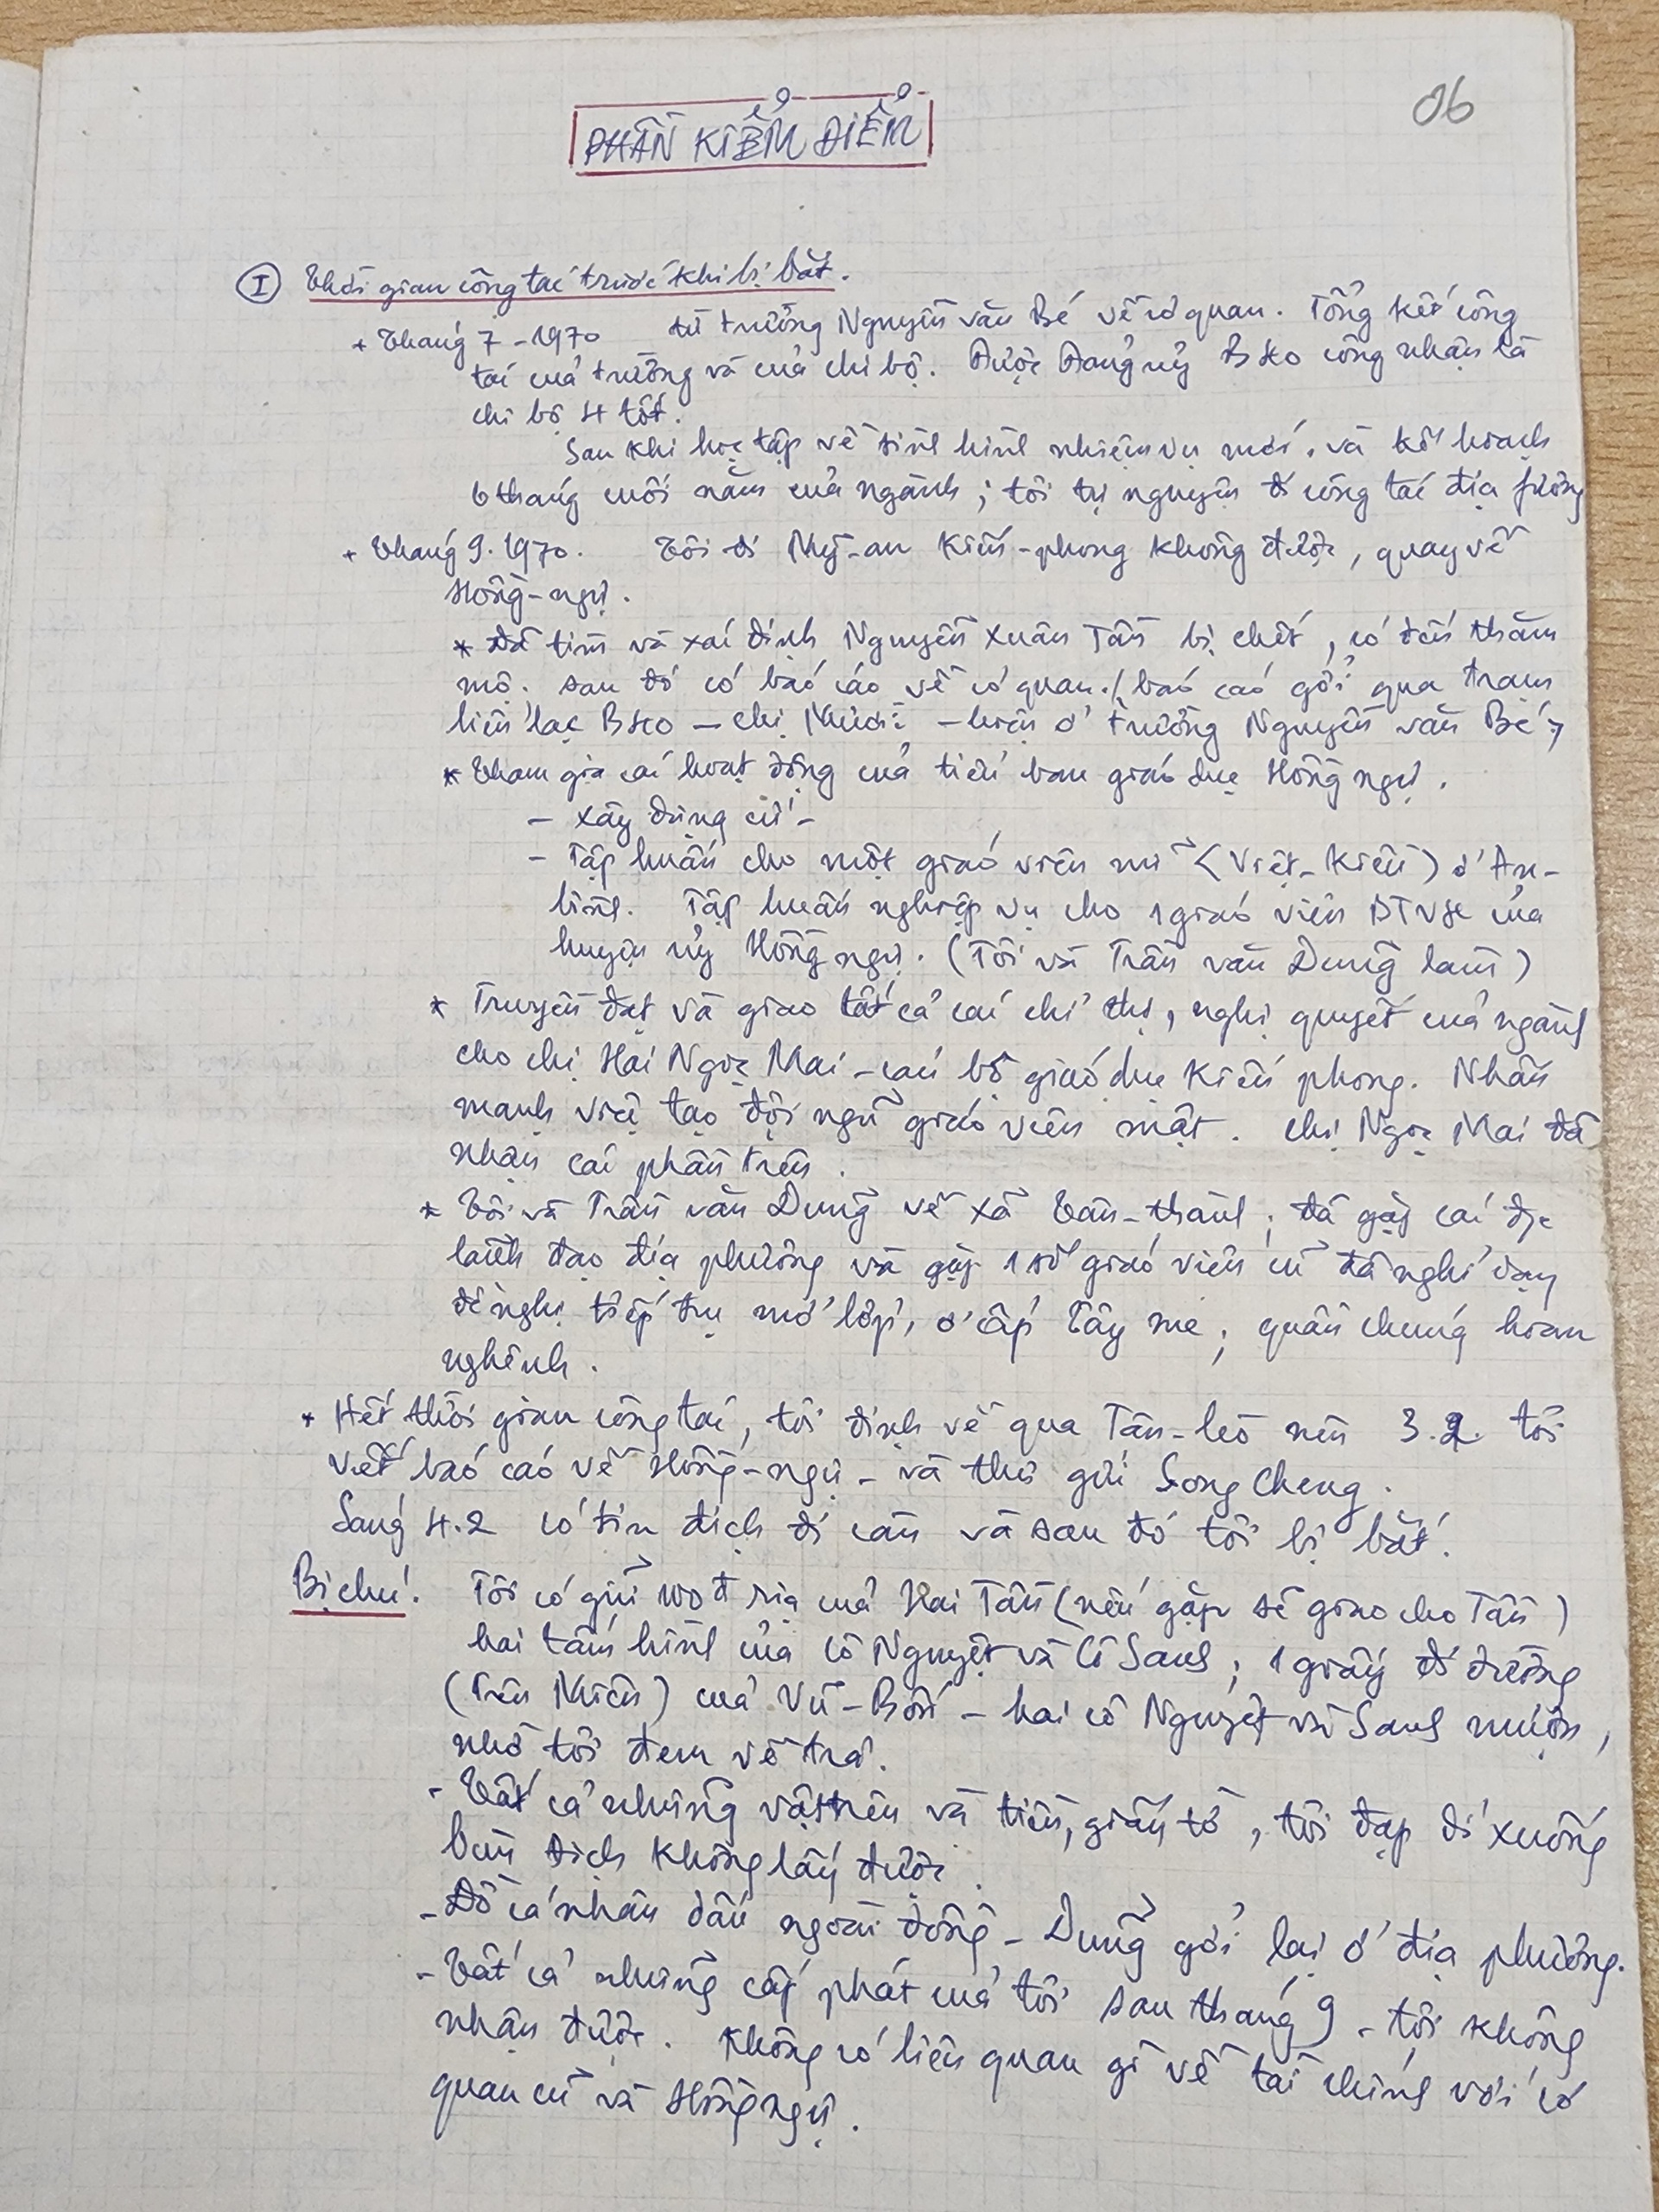 06
PHẦN KIỂM ĐIỂM
I Thời gian công tác trước khi bị bắt.
+ Tháng 7-1970 từ trường Nguyễn văn Bé về cơ quan. Tổng kết công
tác của trường và của chi bộ. Được Đảng ủy B40 công nhận là
chi bộ 4 tốt.
Sau khi học tập về tình hình nhiệm vụ mới, và kế hoạch
6 tháng cuối năm của ngành; tôi tự nguyện đi công tác địa fương
+ Tháng 9.1970. Tôi đi Mỹ-an Kiến-phong không được, quay về
Hồng-ngự.
* Đã tìm và xác định Nguyễn Xuân Tấn bị chết, có đến thăm
mộ. sau đó có báo cáo về cơ quan. (báo cáo gởi qua trạm
liên lạc B40 – chị Mười – hiện ở trường Nguyễn văn Bé)
* Tham gia các hoạt động của tiểu ban giáo dục Hồng ngự.
– Xây dựng cứ –
– Tập huấn cho một giáo viên nữ (Việt-Kiều) ở An-
bình. Tập huấn nghiệp vụ cho 1 giáo viên BTVH của
huyện ủy Hồng ngự. (Tôi và Trần văn Dũng làm)
* Truyền đạt và giao tất cả các chỉ thị, nghị quyết của ngành
cho chị Hai Ngọc Mai – cán bộ giáo dục Kiến phong. Nhấn
mạnh việc tạo đội ngũ giáo viên mật. Chị Ngọc Mai đã
nhận các phần trên.
* Tôi và Trần văn Dũng về xã Tân-thành; đã gặp các đ/c
lãnh đạo địa phương và gặp 1 số giáo viên cũ đã nghỉ dạy
đề nghị tiếp tục mở lớp, ở ấp Tây me; quần chúng hoan
nghênh.
+ Hết thời gian công tác, tôi định về qua Tân-leo nên 3.2. tôi
viết báo cáo về Hồng-ngự – và thư gửi Song Cheng.
Sáng 4.2 có tin địch đi càn và sau đó tôi bị bắt.
Bị chú. Tôi có giữ 100 đ ria của Hai Tấn (nếu gặp sẽ giao cho Tấn)
hai tấm hình của Cô Nguyệt và Cô Sanh; 1 giấy đi đường
(Trên Miên) của Vũ-Bốn – hai cô Nguyệt và Sanh mượn,
nhờ tôi đem về trả.
- Tất cả những vật trên và tiền, giấy tờ, tôi đạp đi xuống
bùn địch không lấy được.
- Đồ cá nhân dấu ngoài đồng – Dũng gởi lại ở địa phương.
- Tất cả những cấp phát của tôi sau tháng 9 – tôi không
nhận được. Không có liên quan gì về tài chính với cơ
quan cũ và Hồng ngự.